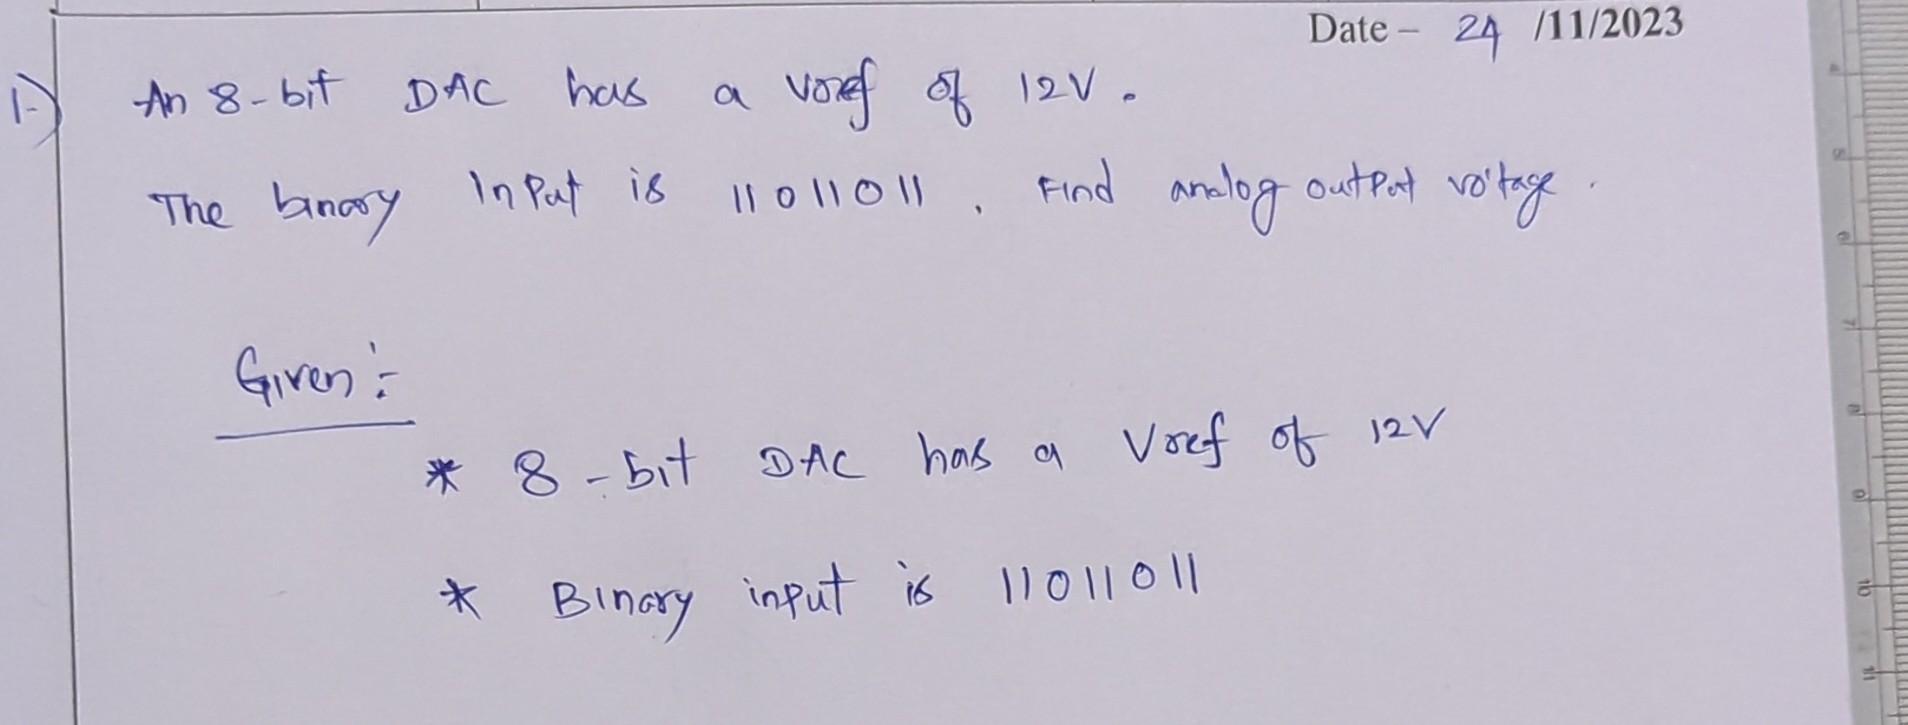 Date - 24 /11/2023
1.) An 8-bit DAC has a Vref of 12V.
The binary Input is 11011011. Find analog output voltage.
Given :-
* 8-bit DAC has a Vref of 12V
* Binary input is 11011011
5
6
7
8
9
10
11